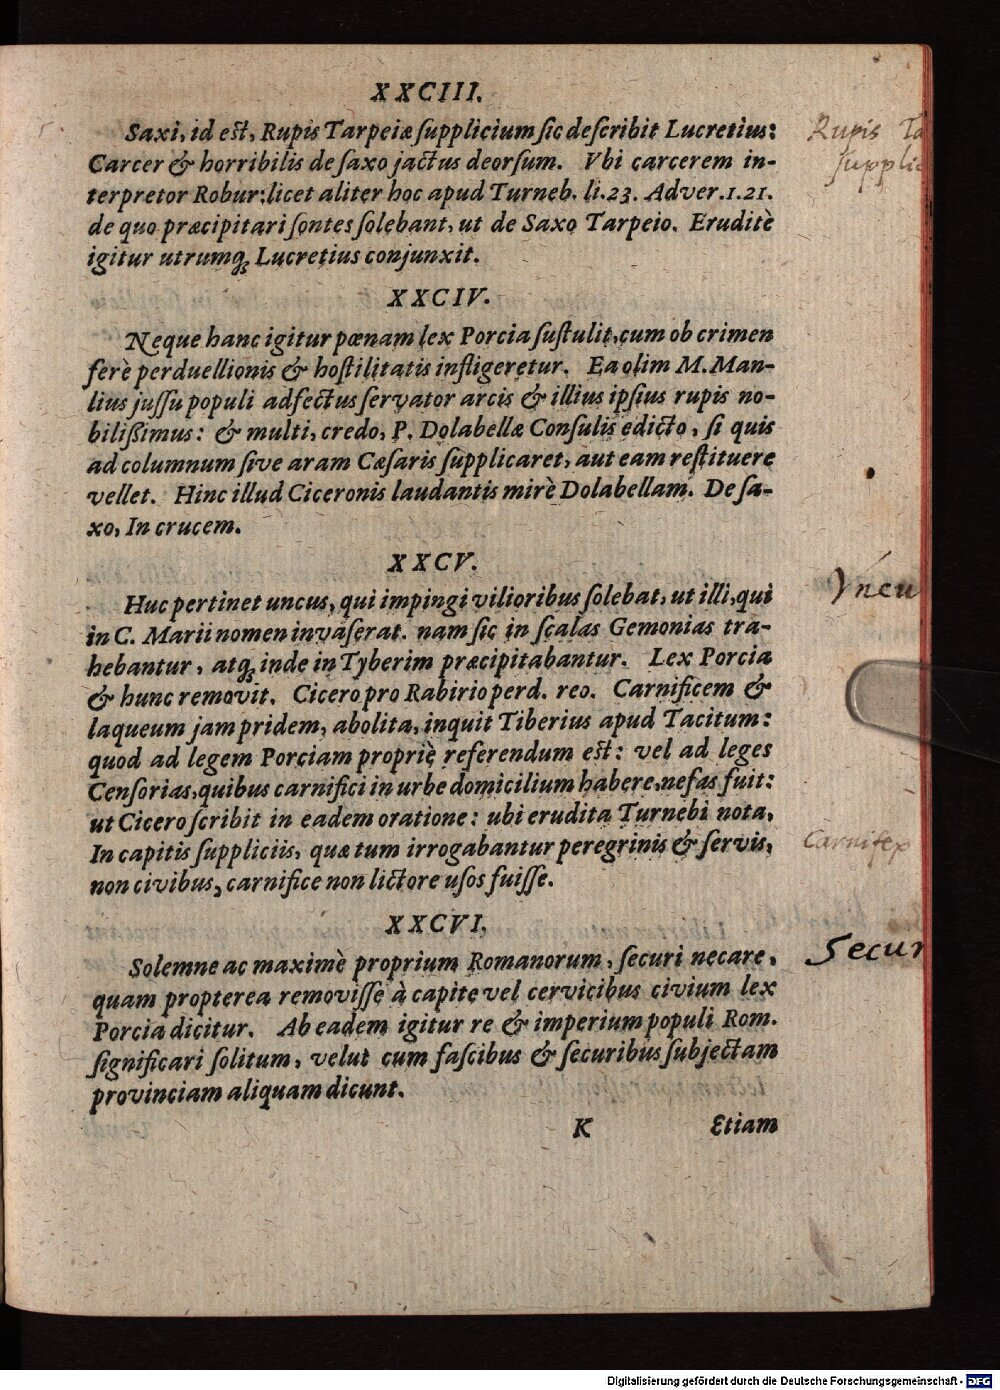 XXCIII.
Saxi, id est, Rupis Tarpeiæ supplicium sic describit Lucretius:
Carcer & horribilis de saxo jactus deorsum. Vbi carcerem in-
terpretor Robur: licet aliter hoc apud Turneb. li. 23. Adver. 1. 21.
de quo præcipitari sontes solebant, ut de Saxo Tarpeio. Eruditè
igitur utrumq́; Lucretius conjunxit.
XXCIV.
Neque hanc igitur pœnam lex Porcia sustulit, cum ob crimen
ferè perduellionis & hostilitatis infligeretur. Ea olim M. Man-
lius jussu populi adfectus servator arcis & illius ipsius rupis no-
bilißimus: & multi, credo, P. Dolabellæ Consulis edicto, si quis
ad columnum sive aram Cæsaris supplicaret, aut eam restituere
vellet. Hinc illud Ciceronis laudantis mirè Dolabellam. De sa-
xo, In crucem.
XXCV.
Huc pertinet uncus, qui impingi vilioribus solebat, ut illi, qui
in C. Marii nomen invaserat. nam sic in scalas Gemonias tra-
hebantur, atq́; inde in Tyberim præcipitabantur. Lex Porcia
& hunc removit. Cicero pro Rabirio perd. reo. Carnificem &
laqueum jam pridem, abolita, inquit Tiberius apud Tacitum:
quod ad legem Porciam propriè referendum est: vel ad leges
Censorias, quibus carnifici in urbe domicilium habere, nefas fuit:
ut Cicero scribit in eadem oratione: ubi erudita Turnebi nota,
In capitis suppliciis, quæ tum irrogabantur peregrinis & servis,
non civibus, carnifice non lictore usos fuisse.
XXCVI.
Solemne ac maximè proprium Romanorum, securi necare,
quam propterea removisse à capite vel cervicibus civium lex
Porcia dicitur. Ab eadem igitur re & imperium populi Rom.
significari solitum, velut cum fascibus & securibus subjectam
provinciam aliquam dicunt.
K Etiam
Rupis Ta
supplic
Vncu
Carnifex
Secur
Digitalisierung gefördert durch die Deutsche Forschungsgemeinschaft - DFG